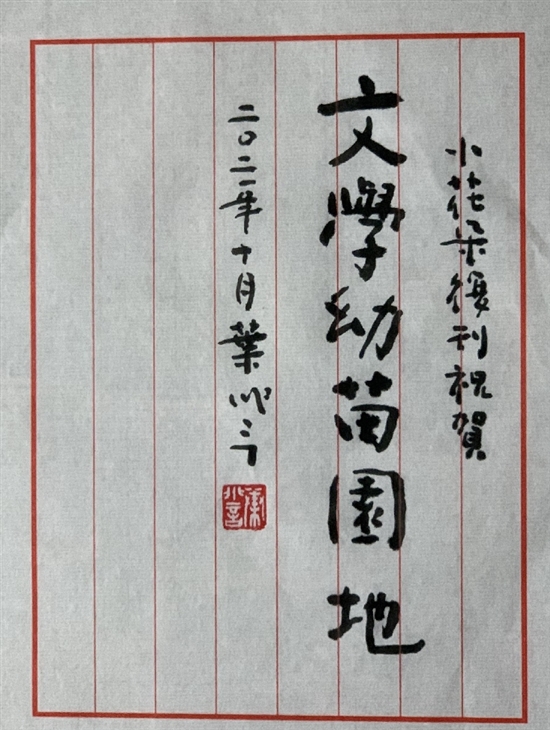 小花朵復刊祝賀
文學幼苗園地
二〇二一年十月葉兆言